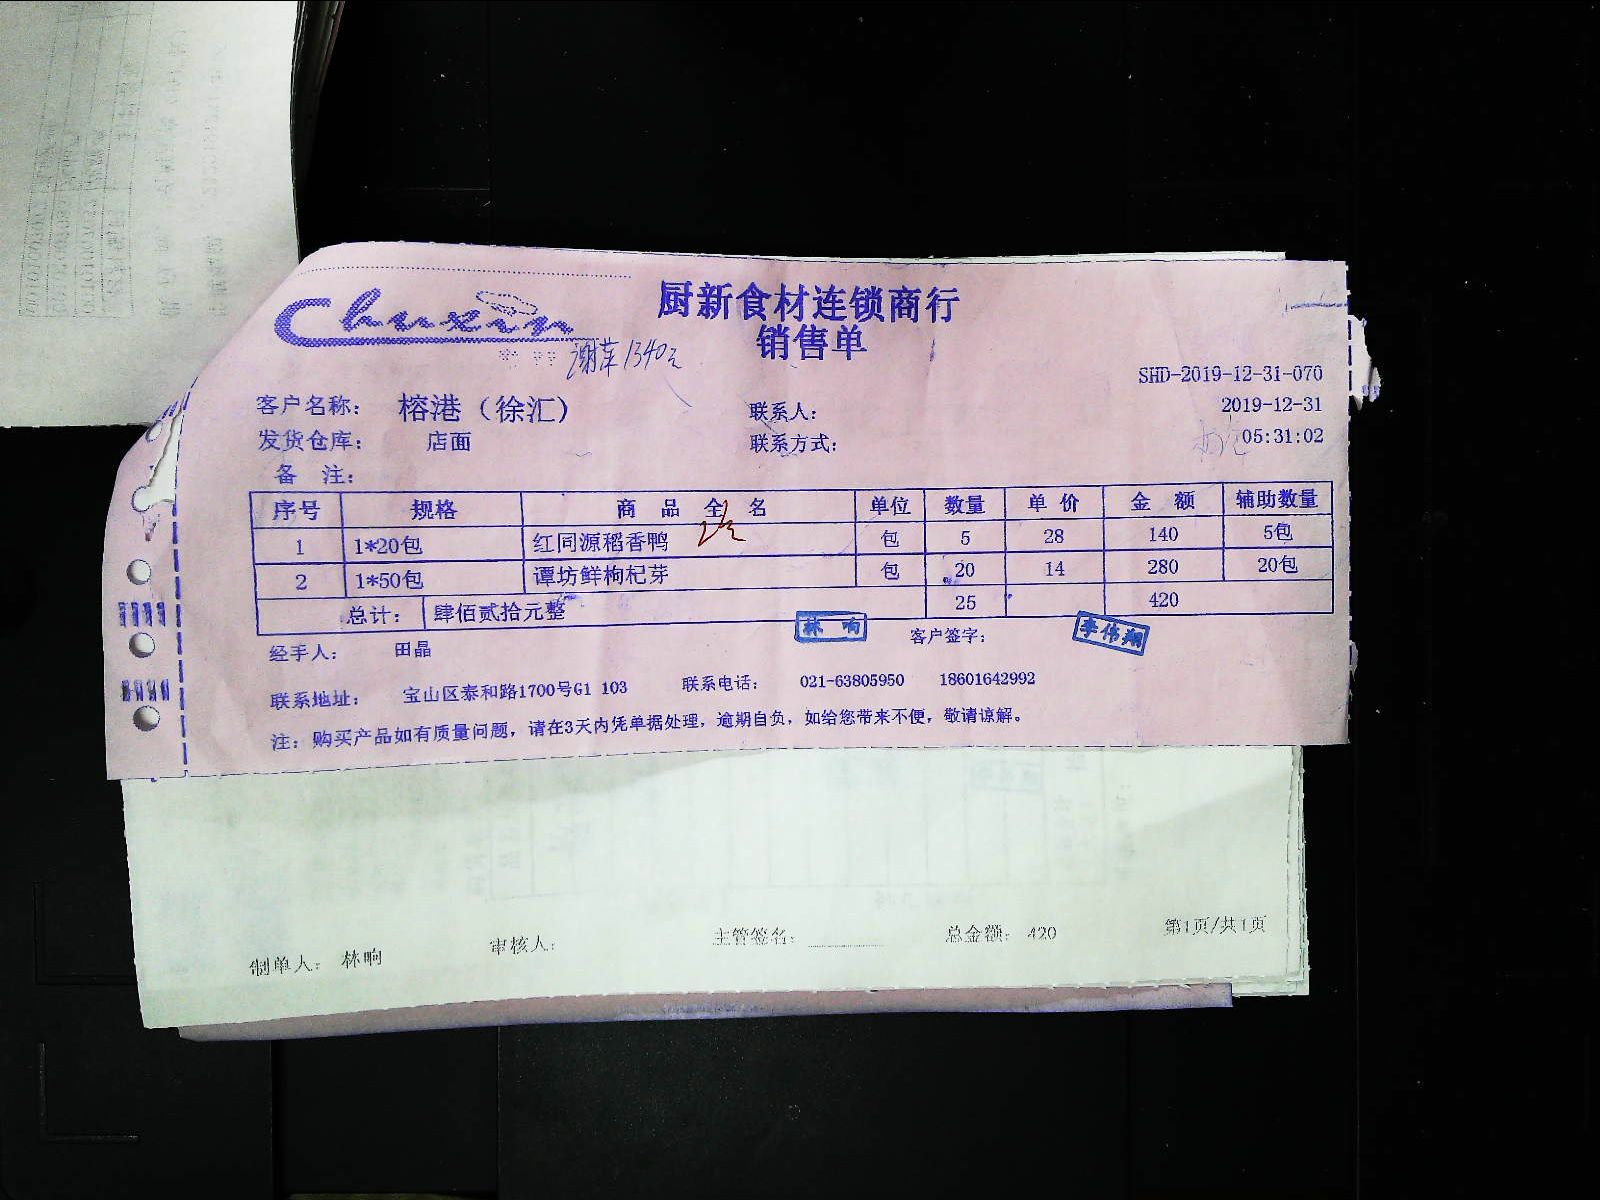 Chuxin
厨新食材连锁商行
销售单
1340元
SHD-2019-12-31-070
客户名称： 榕港（徐汇） 联系人： 2019-12-31
发货仓库： 店面 联系方式： 05:31:02
备 注：
序号 规格 商 品 全 名 单位 数量 单 价 金 额 辅助数量
1 1*20包 红同源稻香鸭 包 5 28 140 5包
2 1*50包 谭坊鲜枸杞芽 包 20 14 280 20包
总计： 肆佰贰拾元整 25 420
经手人： 田晶 林 响 客户签字： 李伟翔
联系地址： 宝山区泰和路1700号G1 103 联系电话： 021-63805950 18601642992
注：购买产品如有质量问题，请在3天内凭单据处理，逾期自负，如给您带来不便，敬请谅解。
制单人： 林响 审核人： 主管签名： 总金额： 420 第1页/共1页